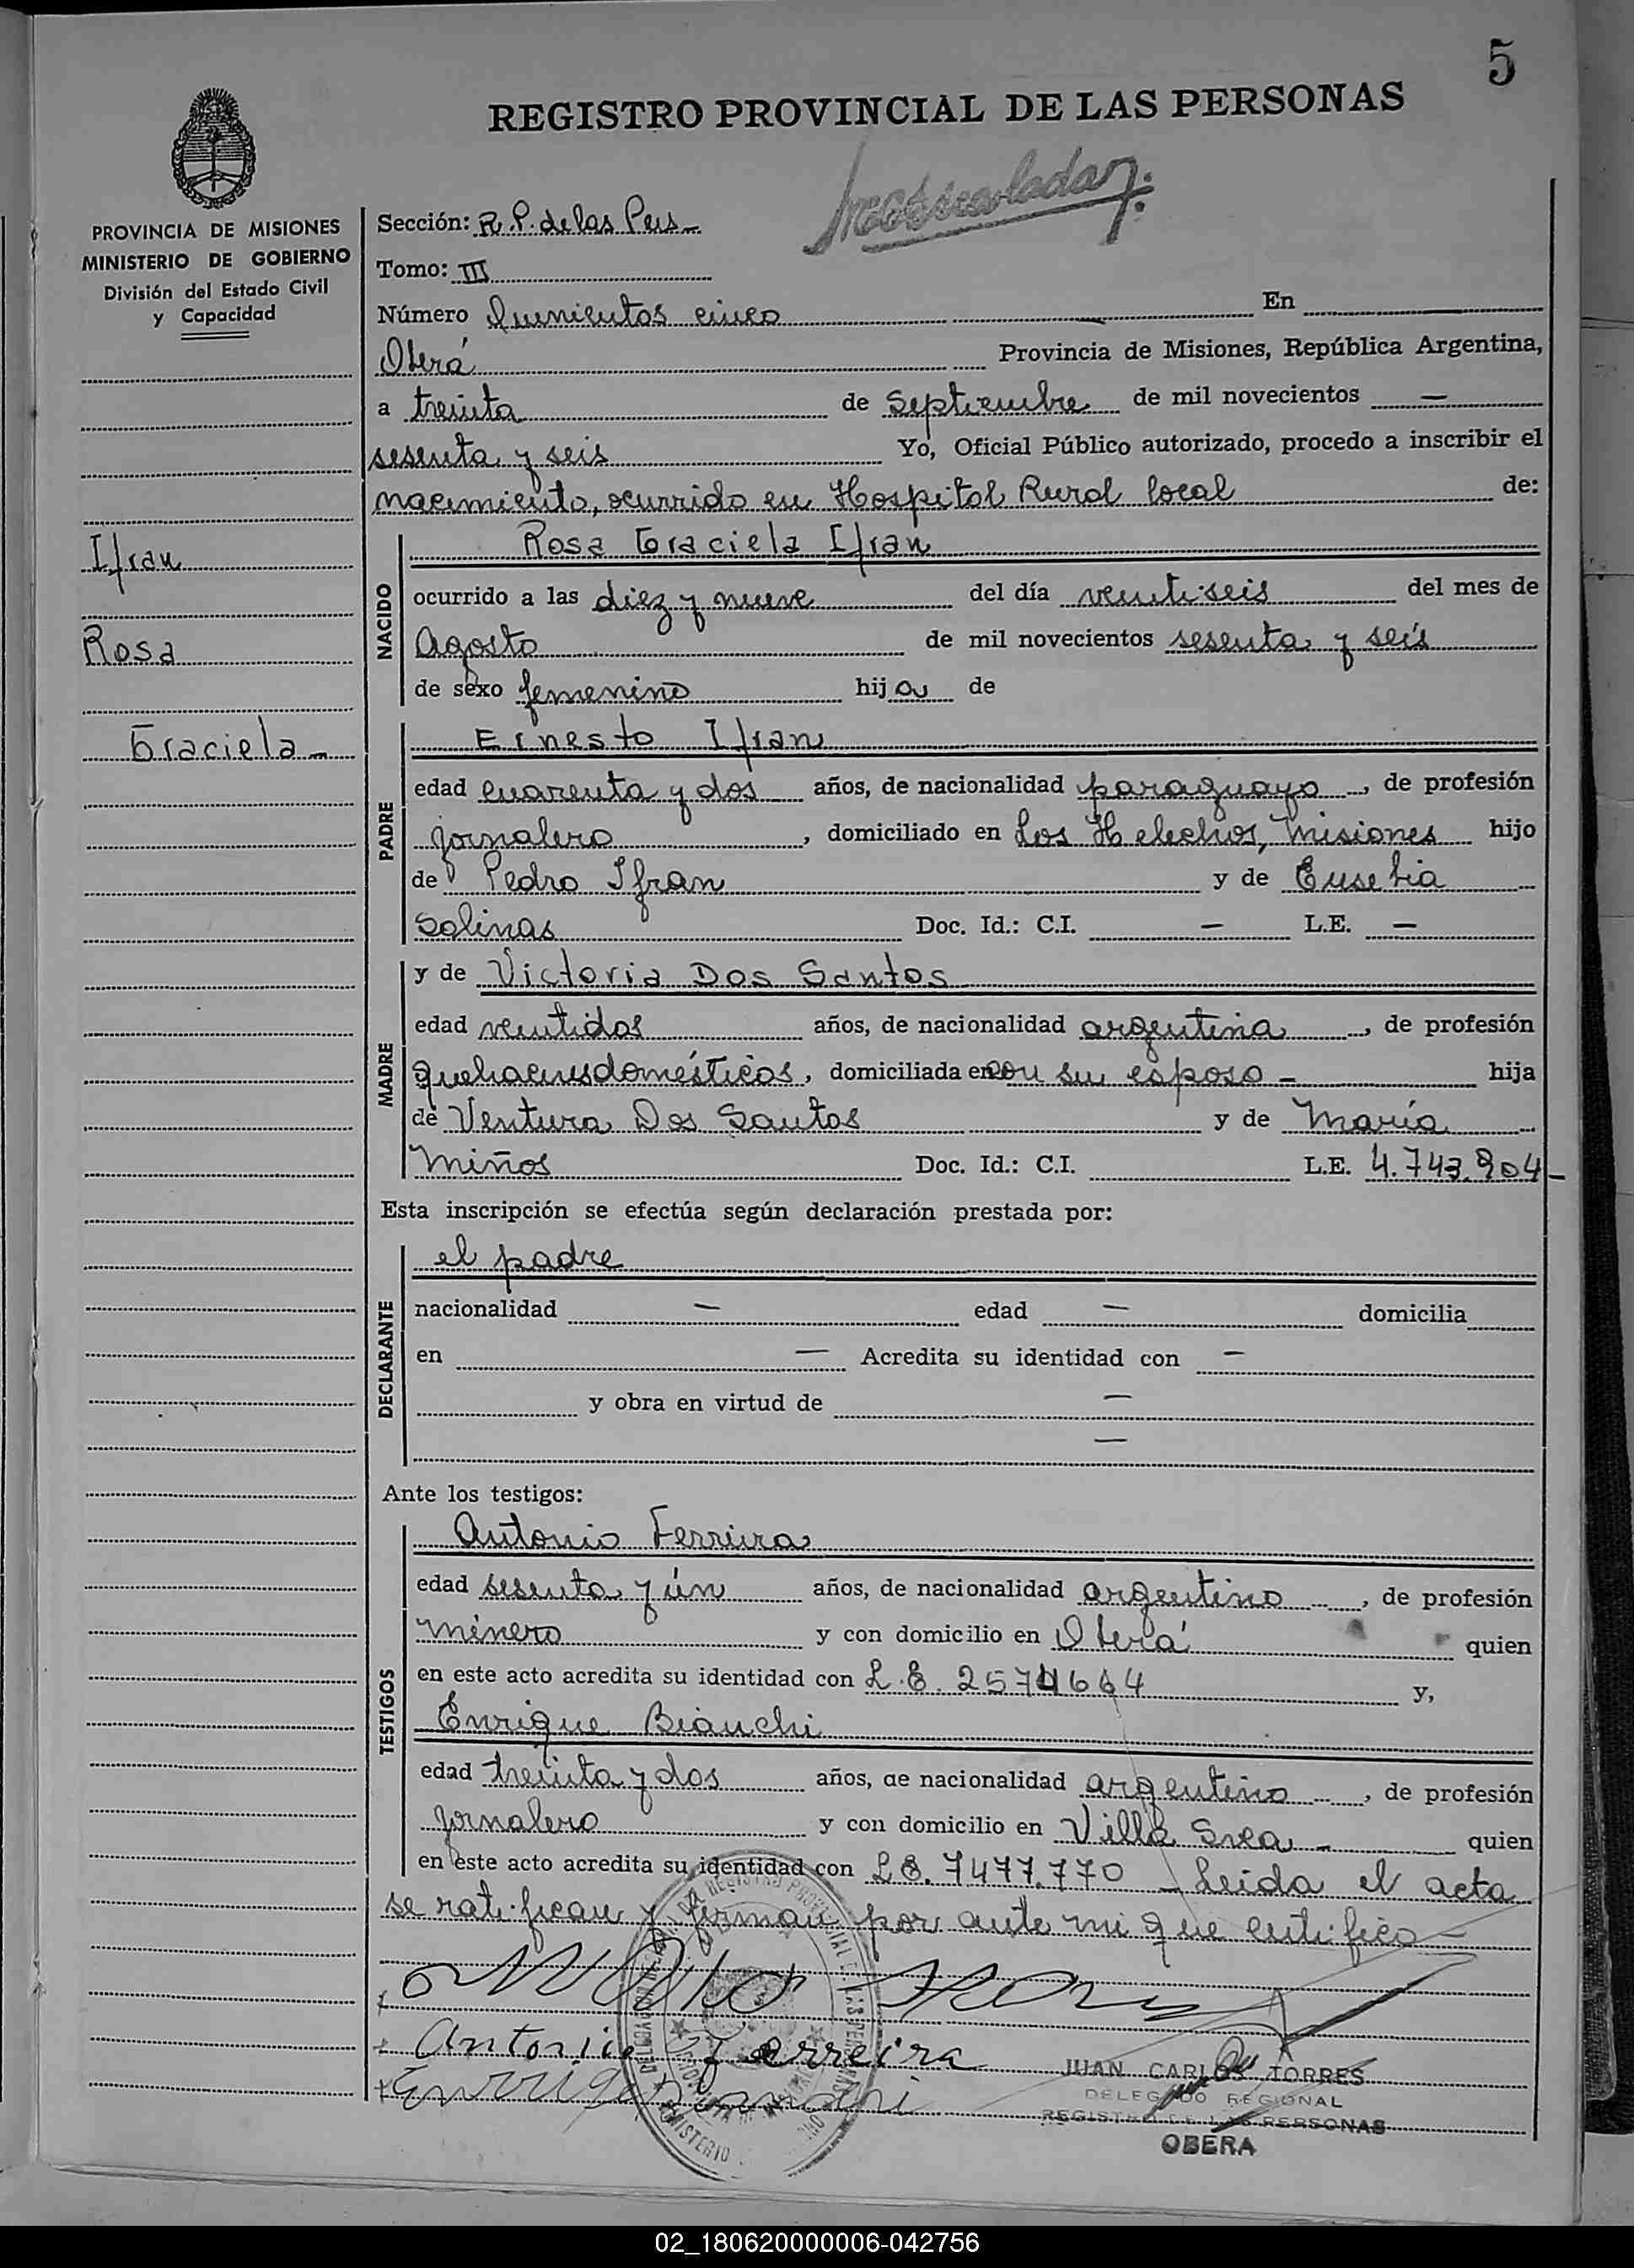 5
REGISTRO PROVINCIAL DE LAS PERSONAS
PROVINCIA DE MISIONES
MINISTERIO DE GOBIERNO
División del Estado Civil
y Capacidad
Ifran
Rosa
Graciela
Sección: R. P. de las Pers
Tomo: III
Número Quinientos cinco En
Oberá Provincia de Misiones, República Argentina,
a treinta de Septiembre de mil novecientos —
sesenta y seis Yo, Oficial Público autorizado, procedo a inscribir el
nacimiento, ocurrido en Hospital Rural local de:
NACIDO
Rosa Graciela Ifran
ocurrido a las diez y nueve del día ventiseis del mes de
Agosto de mil novecientos sesenta y seis
de sexo femenino hija de
PADRE
Ernesto Ifran
edad cuarenta y dos años, de nacionalidad paraguayo, de profesión
jornalero, domiciliado en Los Helechos, Misiones hijo
de Pedro Ifran y de Eusebia
Solinas Doc. Id.: C.I. — L.E. —
MADRE
y de Victoria Dos Santos
edad ventidos años, de nacionalidad argentina, de profesión
quehaceres domésticos, domiciliada en con su esposo - hija
de Ventura Dos Santos y de María
Miños Doc. Id.: C.I. L.E. 4.743.904-
Esta inscripción se efectúa según declaración prestada por:
DECLARANTE
el padre
nacionalidad — edad — domicilia
en — Acredita su identidad con —
y obra en virtud de —
—
Ante los testigos:
TESTIGOS
Antonio Ferreira
edad sesenta y ún años, de nacionalidad argentino, de profesión
minero y con domicilio en Oberá quien
en este acto acredita su identidad con L.E. 2574644 y,
Enrique Bianchi
edad treinta y dos años, de nacionalidad argentino, de profesión
jornalero y con domicilio en Villa Svea - quien
en este acto acredita su identidad con L.E. 7477.770 - Leida el acta
se ratifican y firman por ante mi que certifico
Antonio Ferreira
Enrique Bianchi
JUAN CARLOS TORRES
DELEGADO REGIONAL
REGISTRO DE LAS PERSONAS
OBERA
02_180620000006-042756